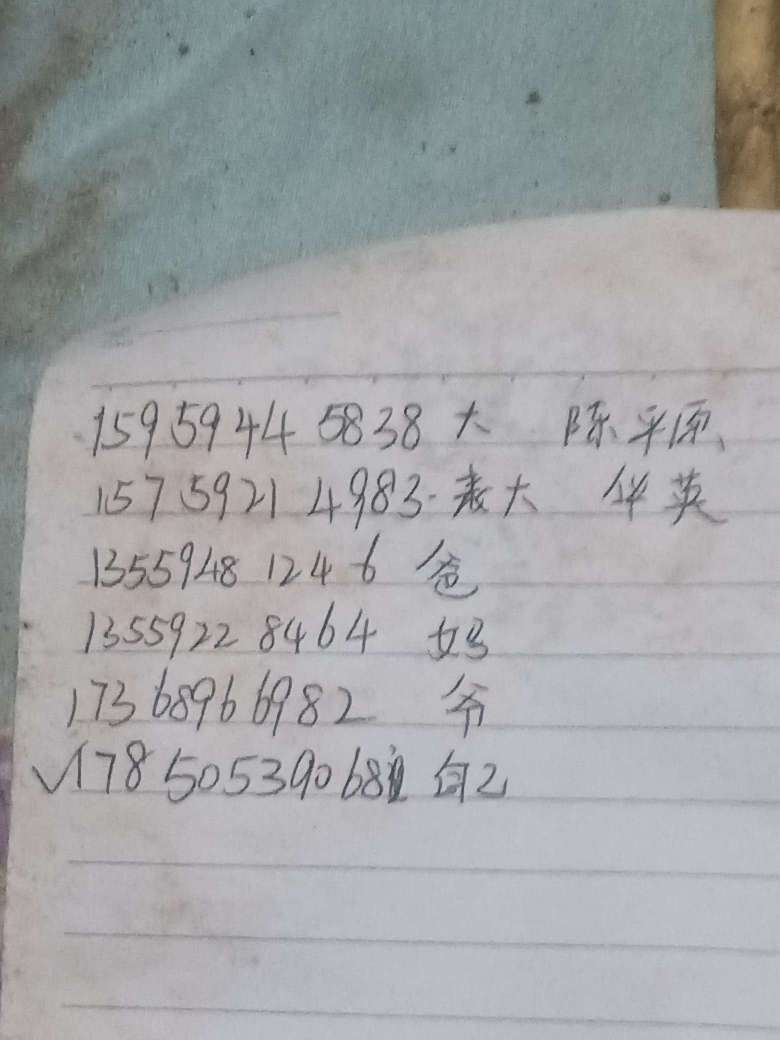 15959445838 大 陈平原、
15759214983.表大 华英
13559481246 爸
13559228464 妈
17368966982 爷
✓17850539068 自己